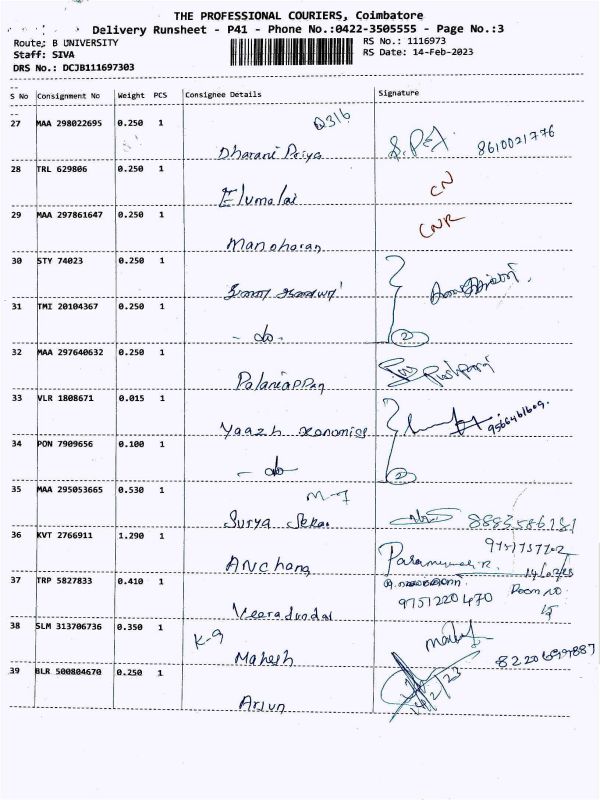 THE PROFESSIONAL COURIERS, Coimbatore
Delivery Runsheet - P41 - Phone No.:0422-3505555 - Page No.:3
Route: B UNIVERSITY
RS No.: 1116973
Staff: SIVA
RS Date: 14-Feb-2023
DRS No.: DCJB111697303
S No Consignment No Weight PCS Consignee Details Signature
27 MAA 298022695 0.250 1
Q316
Dharani Priya 8610021776
28 TRL 629806 0.250 1
Elumalai CN
29 MAA 297861647 0.250 1
Manoharan CNR
30 STY 74023 0.250 1
31 TMI 20104367 0.250 1
- do - 2
32 MAA 297640632 0.250 1
Palaniappan
33 VLR 1808671 0.015 1
Yaazh xonomics 9566461609.
34 PON 7909656 0.100 1
- do - 2
35 MAA 295053665 0.530 1
M-7
Surya Sekar 8883586181
36 KVT 2766911 1.290 1
Anchang
37 TRP 5827833 0.410 1
9751220470 Room no
Veeradundai
38 SLM 313706736 0.350 1
K-9
Mahesh 8220699887
39 BLR 500804670 0.250 1
Arjun 14/2/23